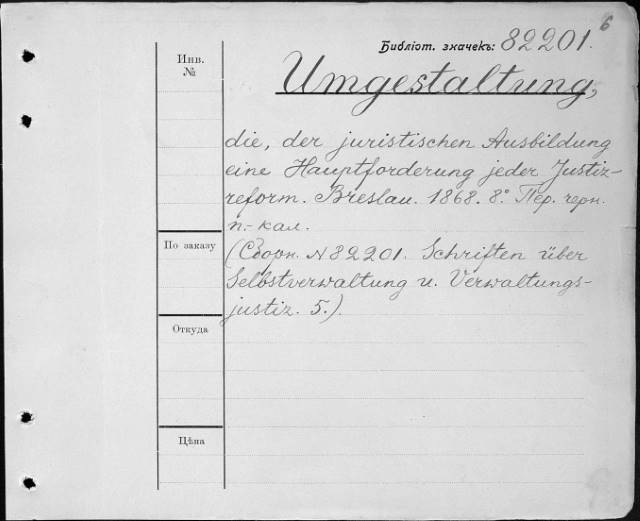 6
Библіот. значекъ: 82201.
Инв.
№
Umgestaltung,
die, der juristischen Ausbildung
eine Hauptforderung jeder Justiz-
reform. Breslau. 1868. 8° Пер. черн.
п.-кал.
По заказу
(Сборн. N 82201. Schriften über
Selbstverwaltung u. Verwaltungs-
justiz. 5.)
Откуда
Цѣна